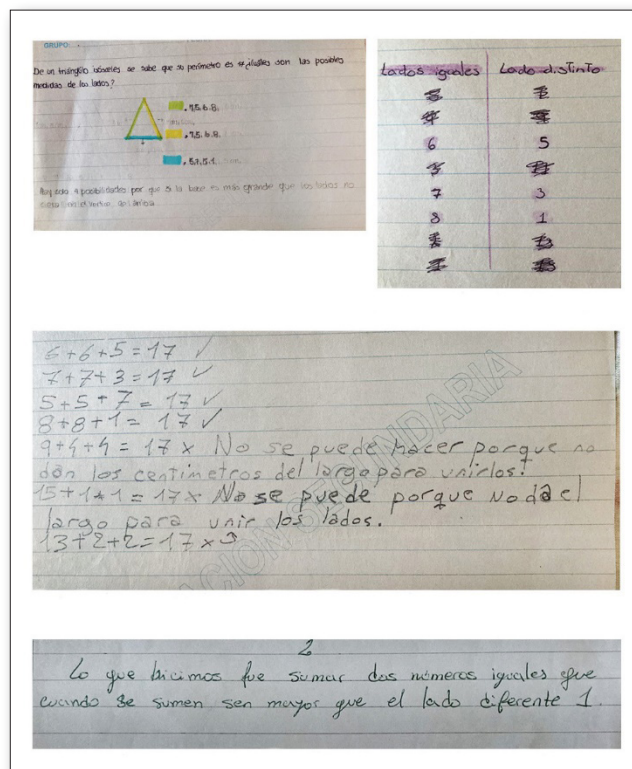 GRUPO:
De un triángulo isósceles se sabe que su perímetro es son las posibles
medidas de los lados?
. 7,5. 6. 8.
. 7,5. 6. 8.
. 5,7, 5. 1.
Hay solo 4 posibilidades por que si la base es más grande que los lados no
Lados iguales Lado disTinTo
6 5
7 3
8 1
6+6+5=17 ✓
7+7+3=17 ✓
5+5+7=17 ✓
8+8+1=17 ✓
9+4+4=17 x No se puede hacer porque no
dan los centimetros del largo para unirlos.
15+1+1=17x No se puede porque no da el
largo para unir los lados.
13+2+2=17 x
2
Lo que hicimos fue sumar dos números iguales que
cuando se sumen sen mayor que el lado diferente 1.